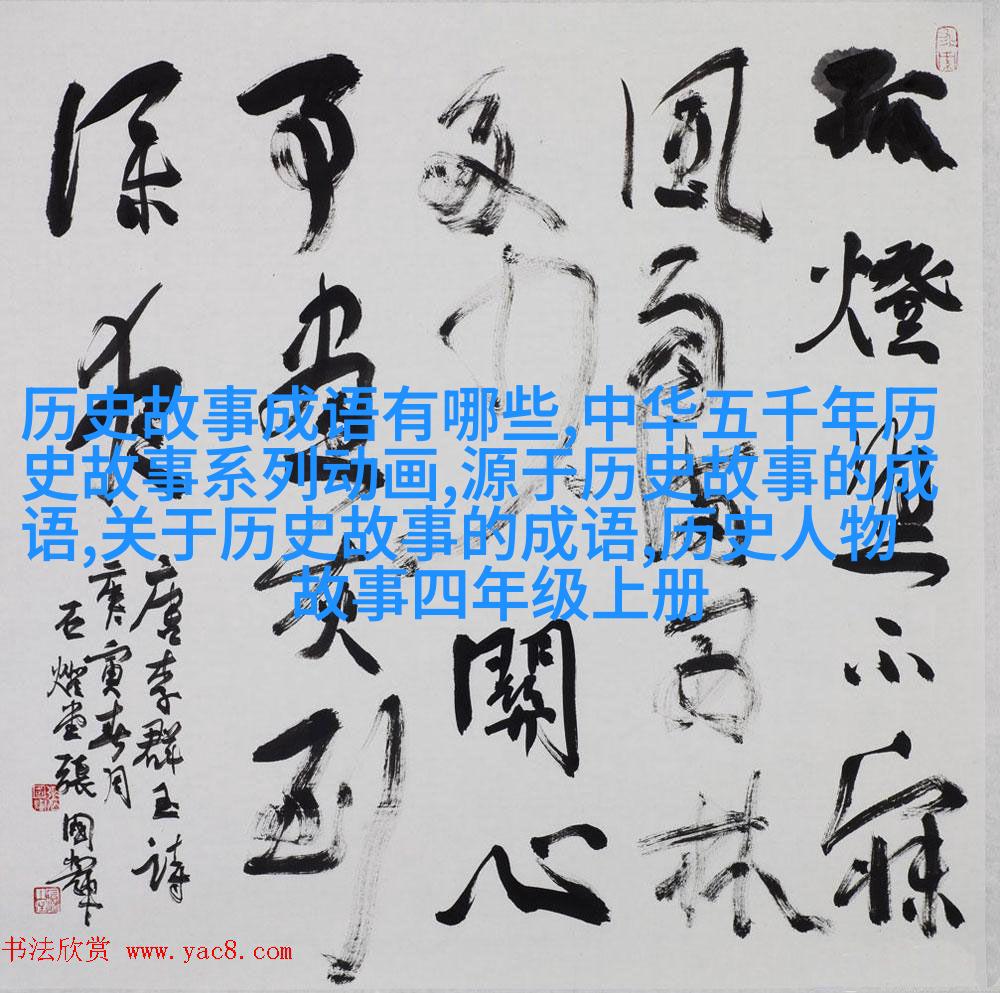 孤燈照不寐
風雨滿西林
多少關心
事書灰到
深夜
唐李群玉詩
庚寅春月
張國輝
历史故事成语有哪些,中华五千年历
史故事系列动画,源于历史故事的成
语,关于历史故事的成语,历史人物
故事四年级上册
书法欣赏 www.yac8.com